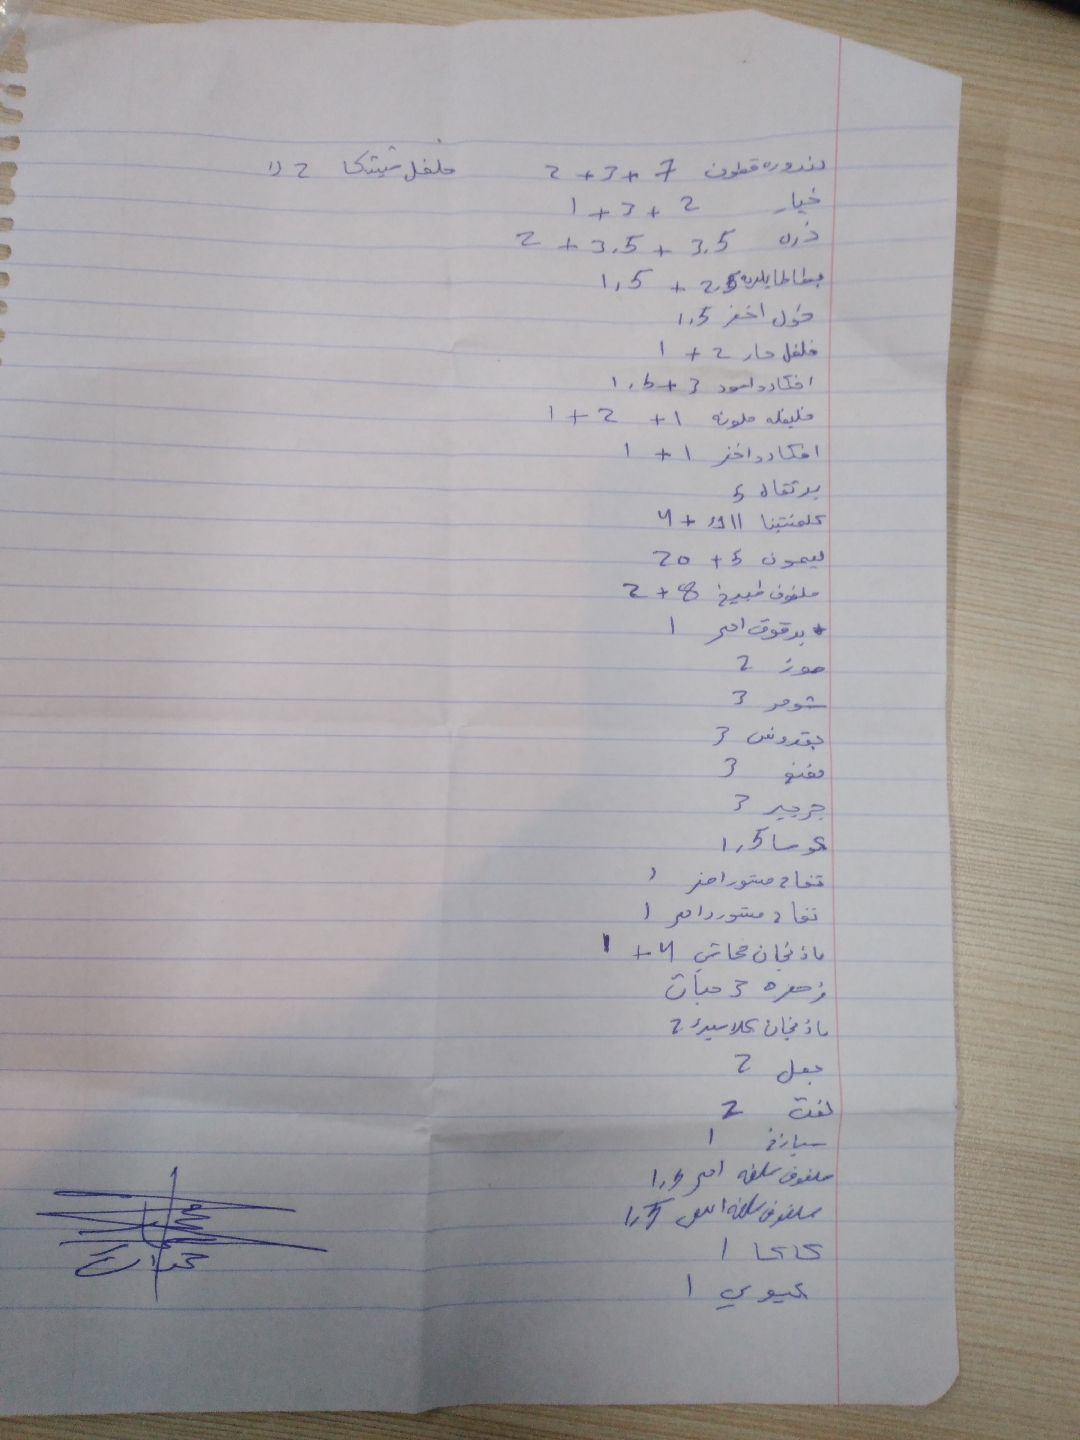 بندوره قطون 7 + 3 + 2
فلفل شيتكا 2
خيار 2 + 3 + 1
ذره 3.5 + 3.5 + 2
بطاطا بلديه 2.5 + 1,5
فول اخضر 1,5
فلفل حار 2 + 1
افكادو اسود 3 + 1,5
فليفله ملونه 1 + 2 + 1
افكادو اخضر 1 + 1
برتقال 5
كلمنتينا 11 + 4
ليمون 5 + 20
ملفوف طبيخ 8 + 2
برقوق احمر 1
موز 2
شومر 3
بقدونس 3
نعنع 3
جرجير 3
كوسا 1,5
تفاح مستورد اخضر 1
تفاح مستورد احمر 1
باذنجان محاشي 4 + 1
زهره 3 حبات
باذنجان كلاسيك 2
بصل 2
لفت 2
سبانخ 1
ملفوف سلطه احمر 1,5
ملفوف سلطه ابيض 1,5
كاكا 1
كيوي 1